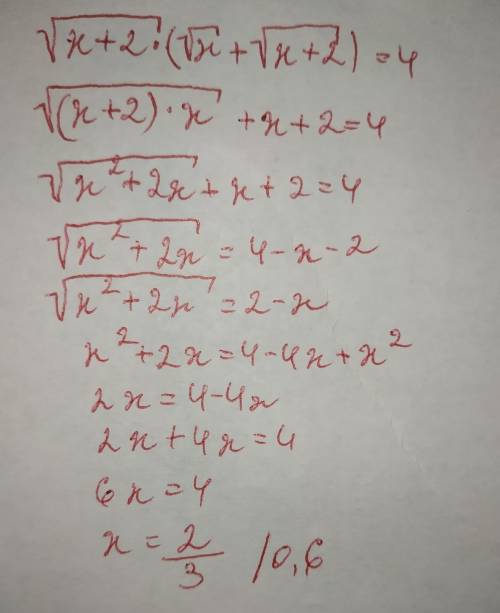 √(x+2) · (√x + √(x+2)) = 4
√((x+2)·x) + x + 2 = 4
√(x² + 2x) + x + 2 = 4
√(x² + 2x) = 4 - x - 2
√(x² + 2x) = 2 - x
x² + 2x = 4 - 4x + x²
2x = 4 - 4x
2x + 4x = 4
6x = 4
x = 2/3 / 0,6